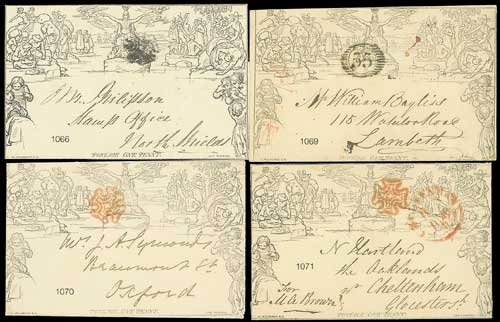 J. W. Philipson
Stamp Office
North Shields
1066
POSTAGE ONE PENNY.
55
Mr William Bayliss
115 Waterloo Road
Lambeth
1069
POSTAGE ONE PENNY.
Mr. J. A. Symonds
Beaumont St.
Oxford
1070
POSTAGE ONE PENNY.
N Hartland
the Oaklands
nr Cheltenham
Glocestersh
1071
For
M A Browne
POSTAGE ONE PENNY.